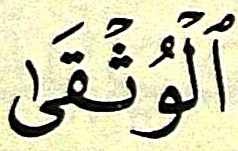 ٱلۡوُثۡقَىٰ